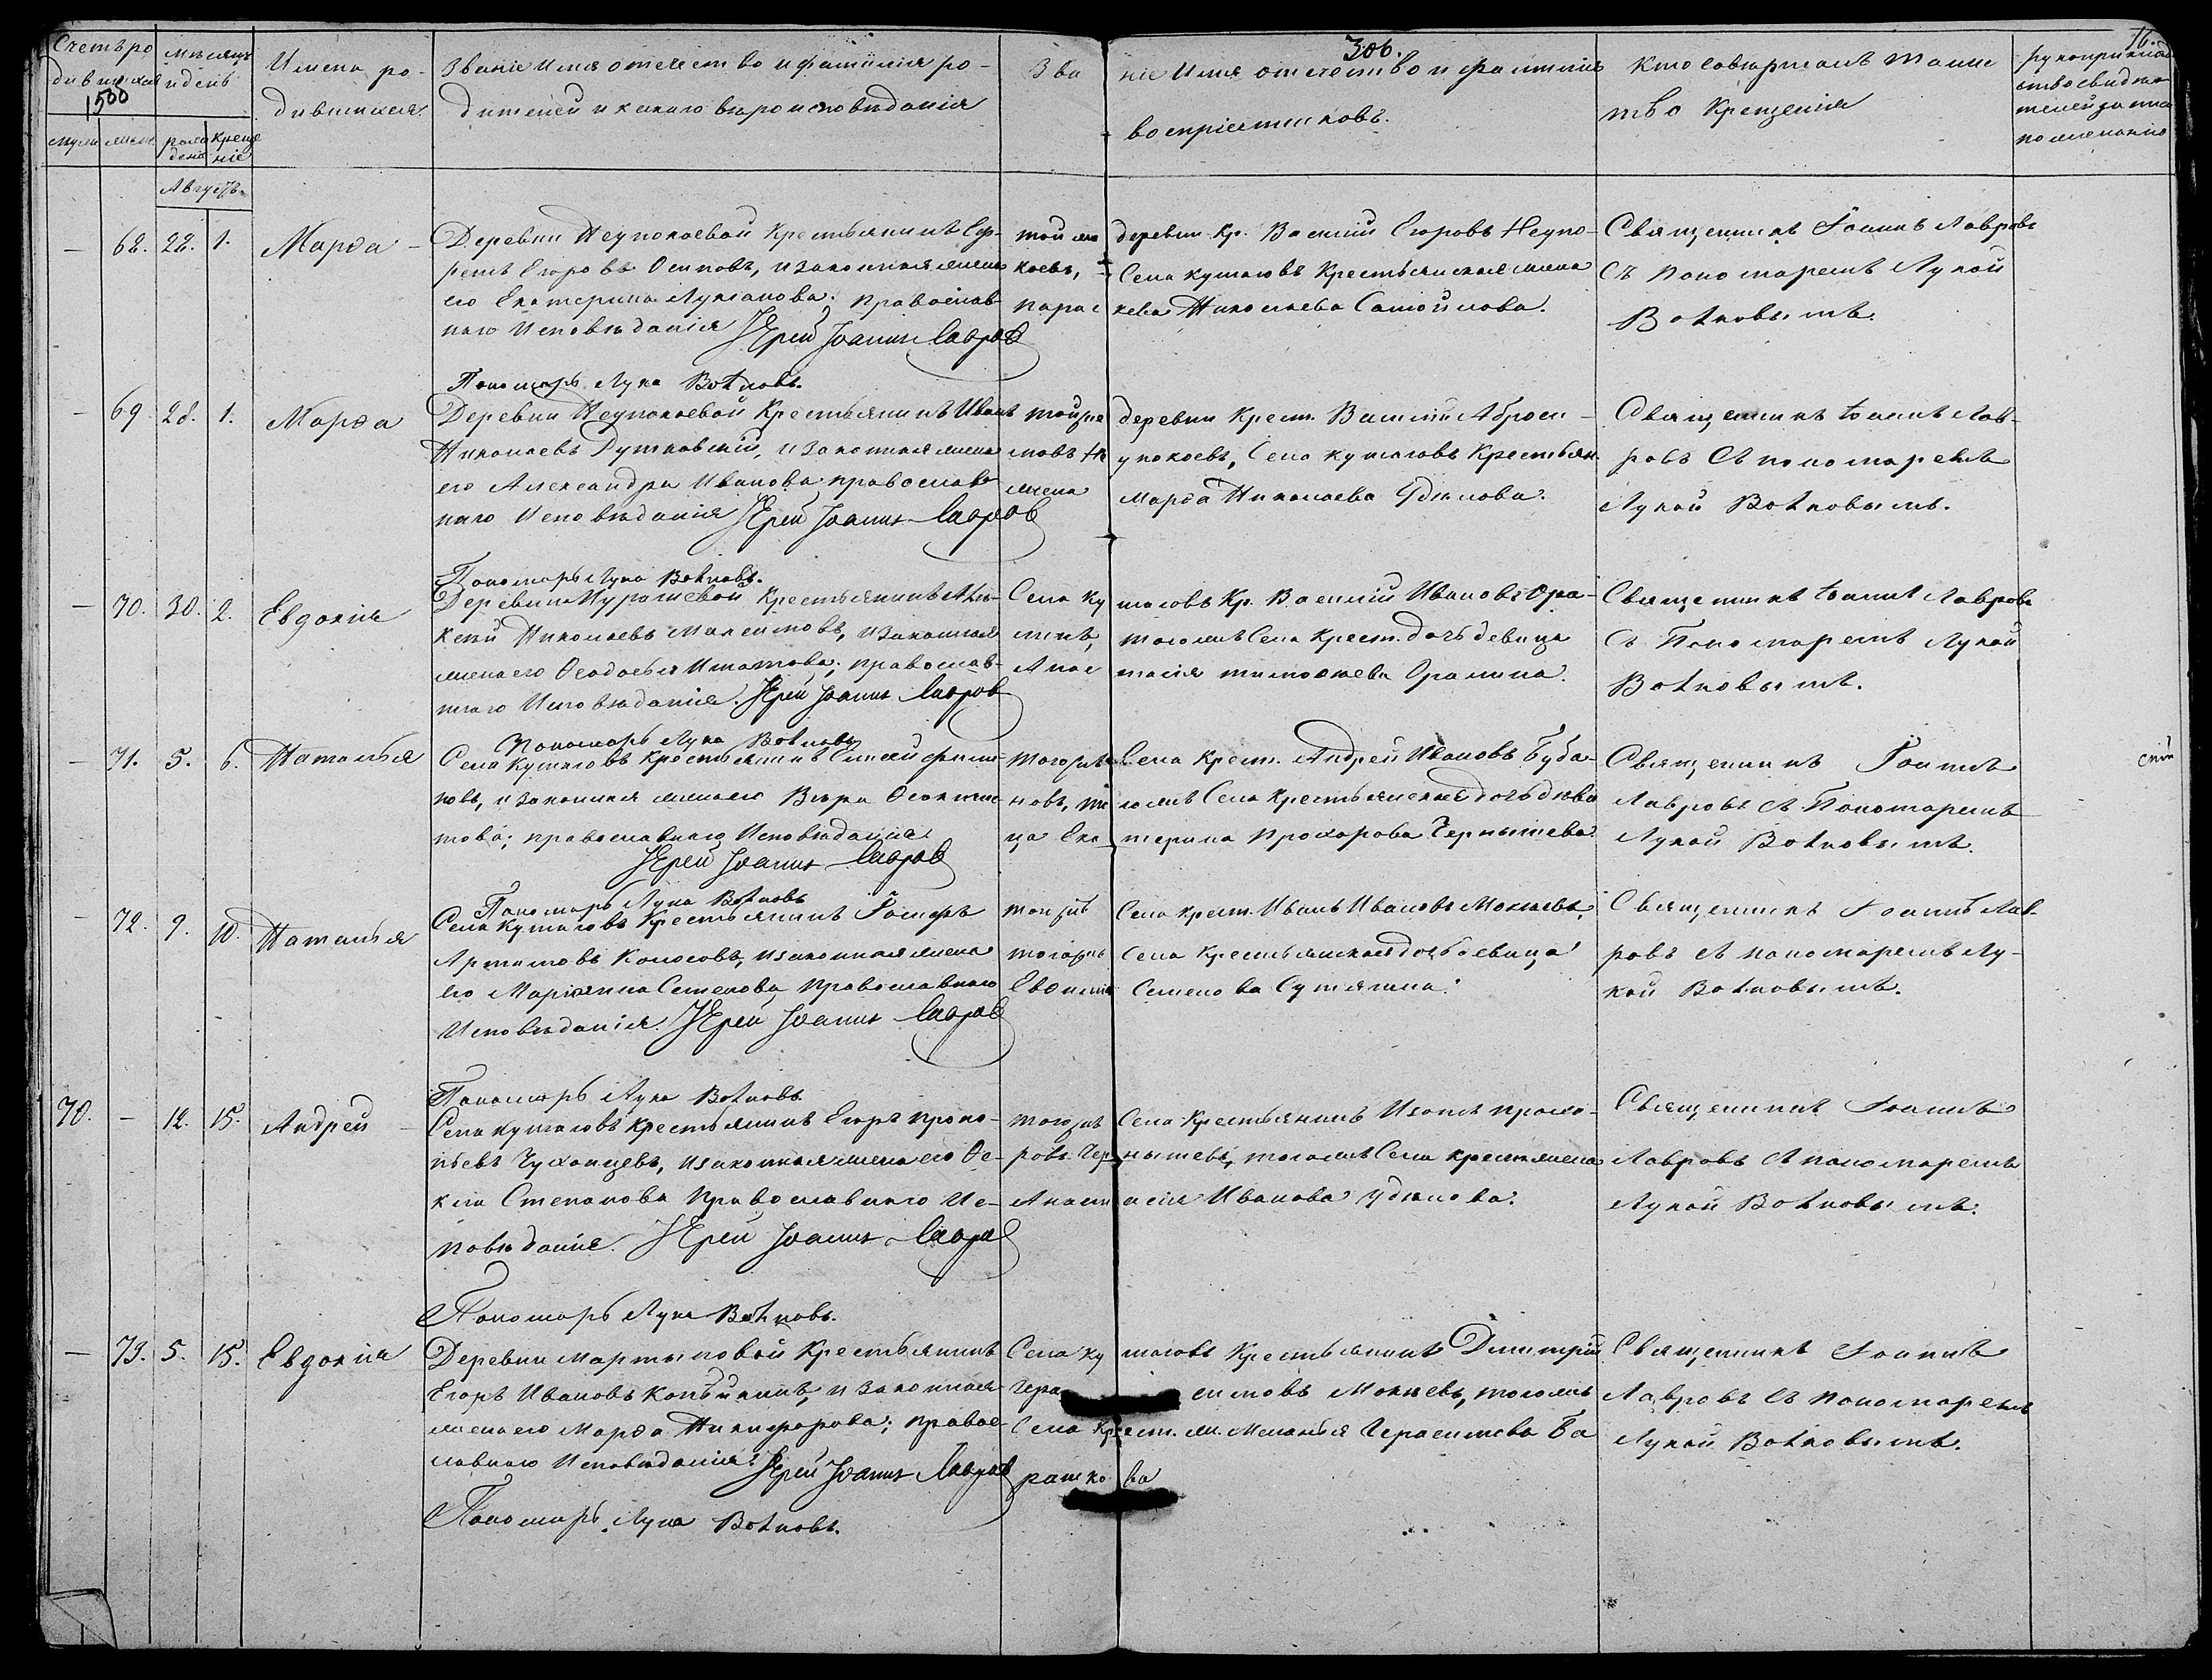 306.
16.
Счетъ ро
дившихся
1500
муж. женс.
мѣсяцъ
и день
рожде крещ
деніе ніе
Имена ро-
дившихся.
Званіе имя отечество и фамилія ро-
дителей и какого вѣроисповѣданія
Званіе имя отечество и фамилія
воспріемниковъ.
Кто совершалъ таинс
тво Крещенія
рукоприклад
ство свидѣ
телей записи
по желанію
Августъ.
— 68. 28. 1. Марѳа
Деревни Неупокоевой Крестьянинъ Еф-
ремъ Егоровъ Осиповъ, и законная жена
его Екатерина Лукіанова; православ
наго Исповѣданія Іерей Іоаннъ Лавровъ
Пономарь Лука Вотновъ.
той же деревни Кр. Василій Егоровъ Неупо-
коевъ, Села Кутаговъ Крестьянская жена
Параскева Николаева Самойлова.
Священникъ Іоаннъ Лавровъ
Съ пономаремъ Лукой
Вотновымъ.
— 69. 28. 1. Марѳа
Деревни Неупокоевой Крестьянинъ Иванъ
Николаевъ Рутковскій, и законная жена
его Александра Иванова православ
наго Исповѣданія Іерей Іоаннъ Лавровъ
Пономарь Лука Вотновъ.
той же деревни Крест. Василій Аброси-
мовъ Неупокоевъ, Села Кутаговъ Крестьян.
жена Марѳа Николаева Удилова.
Священникъ Іоаннъ Лав-
ровъ Съ пономаремъ
Лукой Вотновымъ.
— 70. 30. 2. Евдокія
Деревни Муратевой Крестьянинъ Але-
ксѣй Николаевъ Максимовъ, и законная
жена его Ѳеодосья Ипатова; православ-
наго Исповѣданія. Іерей Іоаннъ Лавровъ
Пономарь Лука Вотновъ
Села Кутаговъ Кр. Василій Ивановъ Ора-
тогожъ Села Крест. дочь девица
Анастасія Тимоѳеева Орамина.
Священникъ Іоаннъ Лавровъ
Съ Пономаремъ Лукой
Вотновымъ.
— 71. 5. 6. Наталья
Села Кутаговъ Крестьянинъ
новъ, и законная жена его Вѣра Ѳеоктис-
това; православнаго Исповѣданія
Іерей Іоаннъ Лавровъ
Пономарь Лука Вотновъ
Тогожъ Села Крест. Андрей Ивановъ Буба-
новъ, тогожъ Села Крестьянская дочь дѣви
ца Екатерина Прохорова Чернышева.
Священникъ Іоаннъ
Лавровъ Съ Пономаремъ
Лукой Вотновымъ.
— 72. 9. 10. Наталья
Села Кутаговъ Крестьянинъ Іосифъ
Артамовъ Колосовъ, и законная жена
его Маріанна Семенова, православнаго
Исповѣданія. Іерей Іоаннъ Лавровъ
Пономарь Лука Вотновъ
тогожъ Села крест. Иванъ Ивановъ Мокѣевъ,
тогожъ Села Крестьянская дочь девица
Евфимія Семенова Сутягина.
Священникъ Іоаннъ Лав-
ровъ Съ пономаремъ Лу-
кой Вотновымъ.
70. — 12. 15. Андрей
Села Кутаговъ Крестьянинъ Егоръ Проко-
пьевъ Чуханцевъ, и законная жена его Ѳе-
кла Степанова Православнаго Ис-
повѣданія. Іерей Іоаннъ Лавровъ
Пономарь Лука Вотновъ.
тогожъ Села Крестьянинъ Изотъ Прохо-
ровъ Чернышевъ, тогожъ Села крест. жена
Анастасія Иванова Удилова.
Священникъ Іоаннъ
Лавровъ Съ пономаремъ
Лукой Вотновымъ.
— 73. 5. 15. Евдокія
Деревни Мартыновой Крестьянинъ
Егоръ Ивановъ Копыкинъ, и законная
жена его Марѳа Никифорова; правос-
лавнаго Исповѣданія Іерей Іоаннъ Лавровъ
Пономарь Лука Вотновъ.
Села Кутаговъ Крестьянинъ Димитрій
Гера симовъ Мокѣевъ, тогожъ
Села Крест. ж. Меланья Герасимова Ба
рашкова
Священникъ Іоаннъ
Лавровъ Съ пономаремъ
Лукой Вотновымъ.